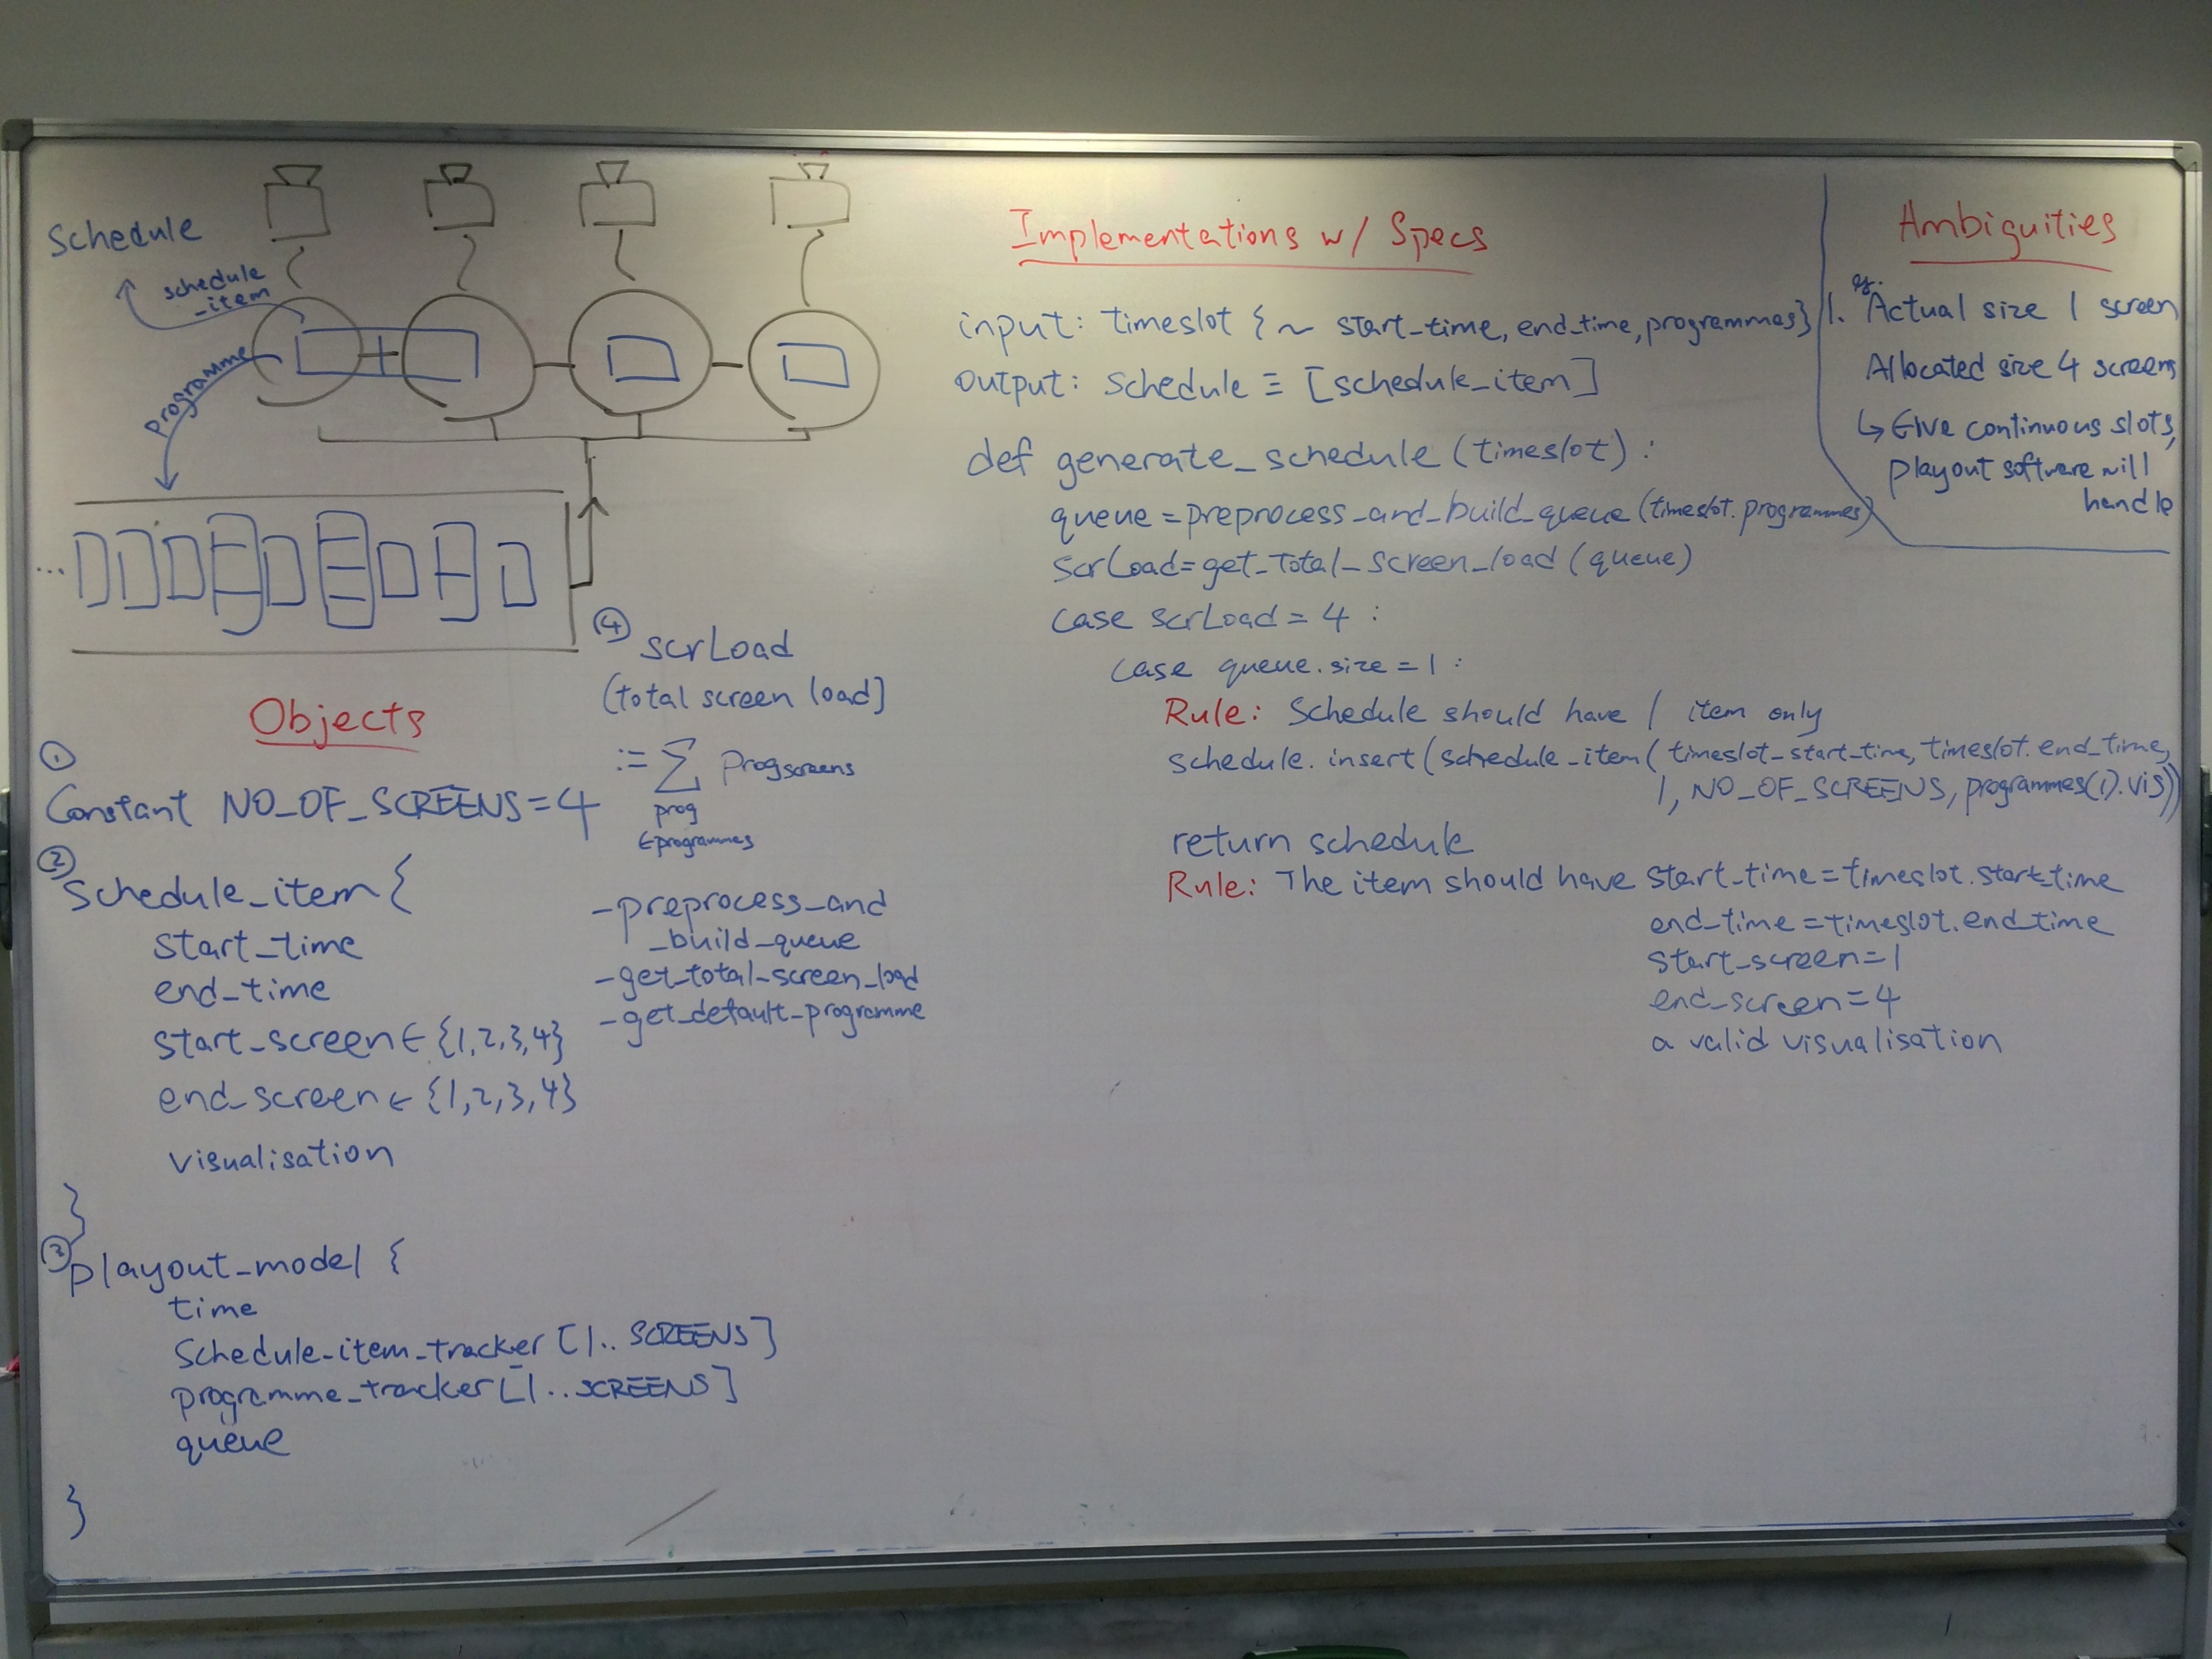 Schedule
schedule
_item
Programme
...
Objects
①
Constant NO_OF_SCREENS=4
②
Schedule_item {
start_time
end_time
start_screen ∈ {1,2,3,4}
end_screen ∈ {1,2,3,4}
visualisation
}
③
playout_model {
time
Schedule_item_tracker [1..SCREENS]
programme_tracker [1..SCREENS]
queue
}
④
scrLoad
(total screen load]
:= ∑ Progscreens
prog
∈programmes
-preprocess_and
_build_queue
-get_total_screen_load
-get_default_programme
Implementations w/ Specs
input: timeslot {~ start_time, end_time, programmes}
output: Schedule ≡ [schedule_item]
def generate_schedule (timeslot):
queue = preprocess_and_build_queue (timeslot.programmes)
ScrLoad=get_total_screen_load (queue)
case scrLoad = 4 :
case queue.size = 1 :
Rule: Schedule should have 1 item only
schedule.insert (schedule_item (timeslot_start_time, timeslot.end_time,
1, NO_OF_SCREENS, programmes(1).vis))
return schedule
Rule: The item should have start_time = timeslot.start_time
end_time = timeslot.end_time
start_screen=1
end_screen=4
a valid visualisation
Ambiguities
eg.
1. Actual size 1 screen
Allocated size 4 screens
↳ Give continuous slots,
playout software will
handle